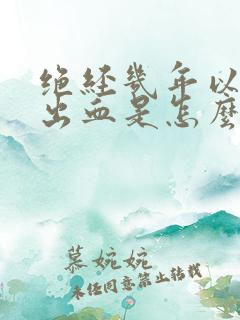 绝经几年以
出血是怎麽
慕婉婉
未经同意禁止转载